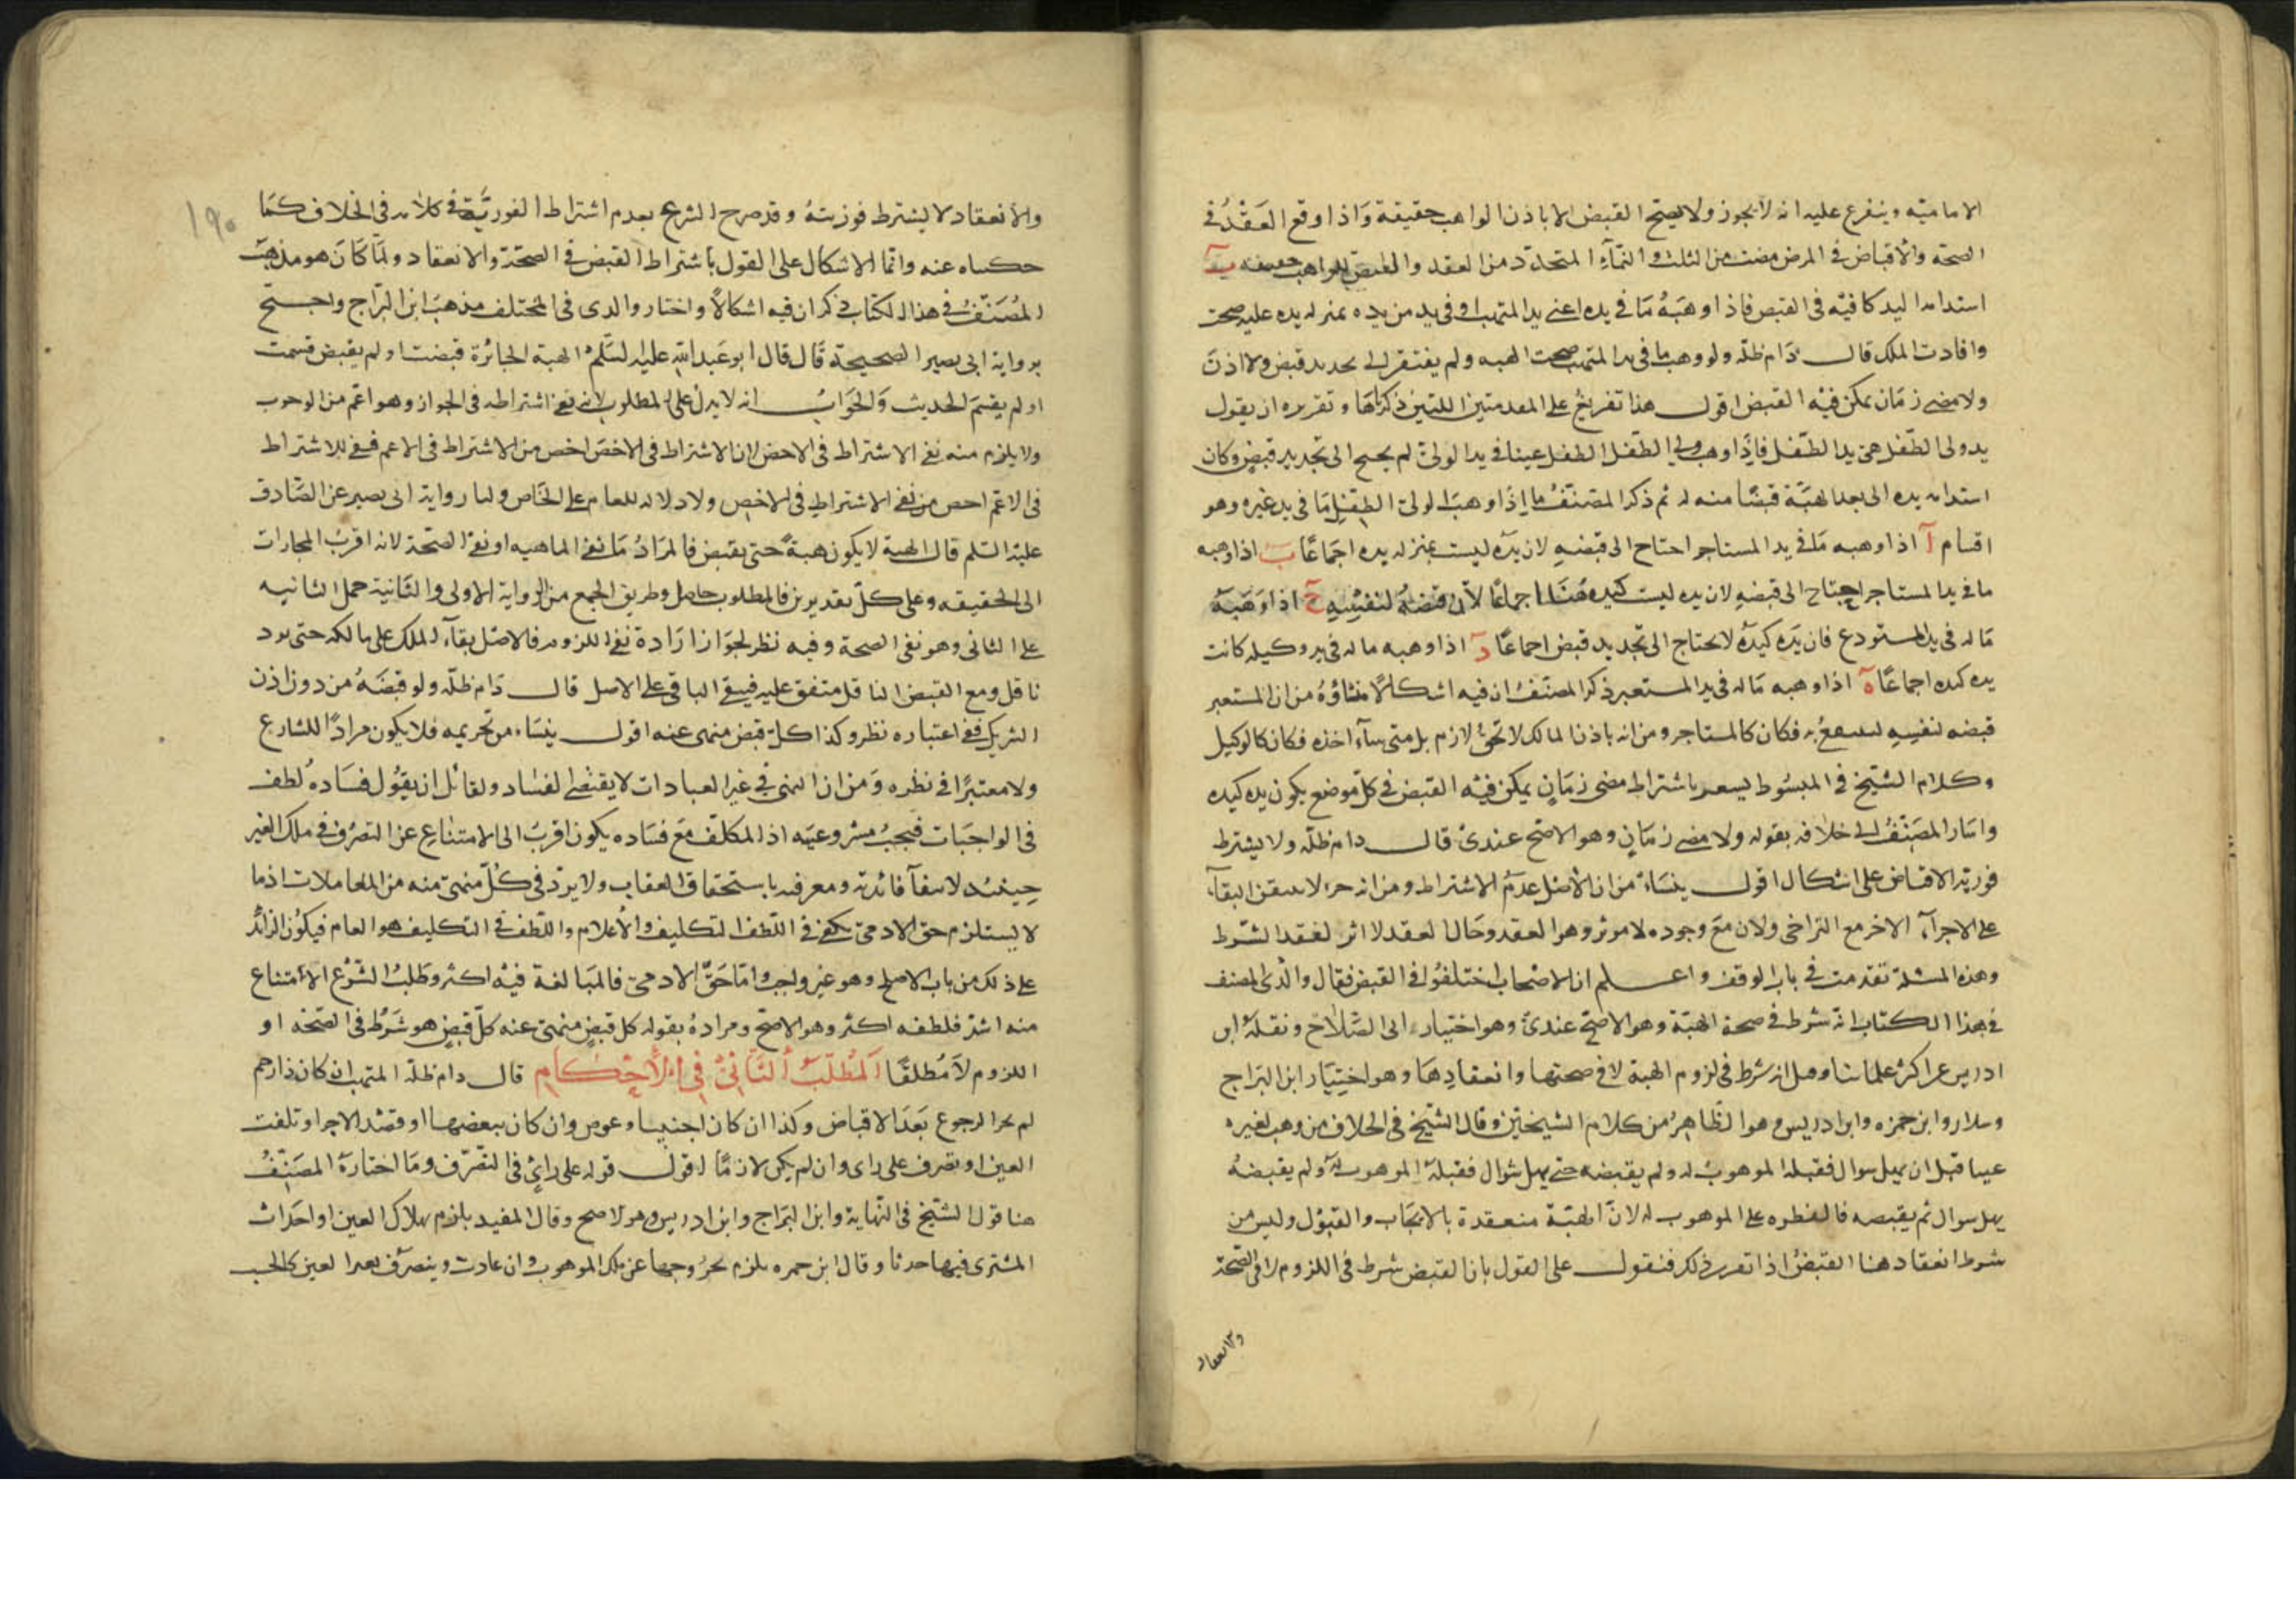 الاماميّه ويتفرع عليه انه لا يجوز ولا يصحّ القبض الا باذن الواهب حقيقة وَاذا وقع العَقْدُ في
الصحّة والأقباض في المرض مضت من الثلث والنّمآءِ المتجدّد من العقد والقبض للواهب حقيقه ب
استدامه اليد كافيّه في القبص فاذا وهَبَهُ مَا في يده اعنى يد المتهب او في يد من يده بمنزله يده عليه صحت
وافادت الملك قال دَام ظلّه ولو وهب ما في يد المتهب صحت الهبه ولم يفتقر الى تجديد قبض ولا اذن
ولا مضى زمَان يمكن فيْه القبض اقول هذا تفريعٌ على المقدمتين اللتين ذكرناها وتقريره ان يقول
يد ولى الطّفل هى يد الطّفل فاذِا وهب ولى الطّفل الطفل عينا في يد الولىّ لم يحتج الى تجديد قبضٍ وكان
استدامه يده الى بعد الهبَّة قبضًا منه له ثم ذكر المصنّفُ ما اِذَا وهبَ لولىّ الطِفلِ مَا في يد غيره وهو
اقسام آ اذا وهبه مَا في يد المستاجر احتاح الى قبضهِ لان يدَه ليست بمنزله يده اجمَاعًا ب اذا وهبه
ما في يد المستاجر احتاج الى قبضهِ لان يده ليست كيده هُنَا اجماعًا لأن قبضهُ لنفسِهِ ج اذا وَهَبَهُ
مَا له في يد المستودع فان يَده كيدهُ لا يحتاج الى تجديد قبض اجماعًا د اذا وهبه ما له في يد وكيله كانت
يده كيده اجماعًا ه اذا وهبه مَا له في يد المستعير ذكر المصنّفُ ان فيه اشكالًا منشاؤهُ من ان المستعير
قبضه لنفسِهِ لينتفعُ به فكان كالمستاجر ومن انه باذن المالك لا لحقٍّ لازم بل متى شآء اخذه فكان كالوكيل
وكلام الشيخ في المبسُوط يشعر باشتراط مضى زمَانٍ يمكن فيْه القبض في كلّ موضع يكون يده كيده
واشار المصَنّفُ الى خلافه بقوله ولا مضى زمَانٍ وهو الاصحّ عندىْ قال دام ظلّه ولا يشترط
فوريّه الاقباض على اشكال اقول ينشَاءُ من ان الأصل عدمُ الاشتراط ومن انه جزء لا بقآء
على الاجزآء الاخر مع التراخى ولان مَع وجوده لا موثر وهو العقد وحَال العقد لا اثر لفقد الشّرط
وهذه المسئلة تقدمت في باب الوقف واعلم ان الاصْحاب اختلفُوا في القبض فقال والدى المصنف
في هذا الكتاب انهّ شرط في صحة الهبّة وهو الاصحّ عندىْ وهو اختيار ابى الصَّلاح ونقلهُ ابن
ادريس عن اكثر علمائنا وهل انه شرط في لزوم الهبة لا في صحتها وانعقادِهَا وهو اختِيَار ابن البَراج
وسلار وابن حمزه وابن ادريس وهو الظّاهِرُ من كلام الشيخيْن وقال الشّيخ في الخلاف من وهب لغيره
عبدا قبل ان يهلّ شوال فقبله الموهوبُ له ولم يقبضه حتى يهل شوال فقبلهُ الموهوب لَهُ ولم يقبضهُ
يهل شوال ثم يقبضه فالفطره على الموهوب له لانّ الهبّة منعقدة بالايجَاب والقبُوْل وليس من
شرط انعقادها القبضُ اذا تقرر ذلك فنقول على القول بان القبض شرط في اللزوم لا في الصّحّة
والانعقاد
والأنعقاد لا يشترط فوريتهُ وقد صرح الشرع بعدم اشتراط الفوريَّة في كلامه في الخلاف كمَا
حكيناه عنه وانّما الاشكال على القول باشتراط القبض في الصحّة والانعقاد ولمّا كَانَ هو مذهبَ
المُصَنّفُ في هذا الكتاب ذكر ان فيه اشكالاً واختار والدى في المختلف مذهب ابن البّراج واحتج
بروايه ابى بصير الصحيحة قَال قال ابو عَبد الله عليه السَّلمُ الهبة الجائزة قبضت او لم يقبض قسمت
او لم يقسَم الحديث وَالجَوَابُ انه لا يدل على المطلوب لانه نفى اشتراطه في الجواز وهو اعّم من الوجوب
ولا يلزم منه نفى الاشتراط في الاخص لان الاشتراط في الاخصّ اخص من الاشتراط في الاعم فنفى للاشتراط
في الاعَّم اخص من نفى الاشتراطِ في الاخصِ ولا دلاله للعام على الخاص ولنا روايه ابى بصير عن الصَّادق
عليْه السّلم قال الهبة لا يكون هبةً حتى يقبض فالمرَادُ مَا نفى الماهيه او نفى الصّحة لانه اقربُ المجازات
الى الحقيقه وعلى كلّ تقديرين فالمطلوب حاصل وطريق الجمع من الروايه الاولى والثَّانية حمل الثانيه
على الثانى وهو نفى الصحة وفيه نظر لجوَاز ارَادة نفى اللزوم فالاصل بقآء الملك على مالكه حتى يود
ناقل ومع القبض الناقل متفق عليه فيبقى الباقى على الاصل قال دَام ظلّه ولو قبضَهُ من دون اذن
الشريك ففى اعتباره نظر وكذا كلّ قبض منهى عنه اقول ينشَاء من تحريمه فلا يكون مرادًا للشارع
ولا معتبرًا في نظره وَمن ان النهى في غير العبادات لا يقتضى الفسَاد ولقائل ان يقُول فسَاده لُطف
في الواجبَات فيجبُ مشروعيّه اذ المكلّف مَعَ فسَاده يكون اقربَ الى الامتنَاعِ عن التصرُف في ملك الغير
حِينئذ لانتفآ فائدته ومعرفه باستحقاق العقاب ولا يردّ في كُلّ منهىّ منه من المعاملات اذ ما
لا يستلزم حق الادمىّ يكفى في اللّطف التكليف والأعلام واللّطف في التكليف هو العام فيكوُن الزائد
على ذلك من باب الاصلح وهو غير واجب وامّا حَقّ الادمىّ فالمبَالغة فيْه اكثر وطَلبُ الشَّرْع الأمتناع
منه اشد فلطفه اكثر وهو الاصّح ومرادهُ بقوله كل قبضٍ منهىّ عنه كلّ قبضٍ هو شَرْط في الصّحّة او
اللزوم لاَ مُطلقًا اَلمُطْلَبُ اُلثَّانِىْ فِى اْلأَحْكَامِ قال دام ظلّه المتهب ان كان ذا رحم
لم يجز الرجوع بَعدَ الاقباض وكذا ان كان اجنبيا وعوض وان كان ببعضها او قصَد الاجر او تلفت
العين او تصرف على راى وان لم يكن لازمًا اقول قوله على رائٍ في التّصرّف ومَا اختارَهُ المصَنِّفُ
هنا قول الشّيخ في النّهاية وابن البَراج وابن ادريس وهو الاصح وقال المفيد يلزم بهلاك العين او احدَاث
المشترى فيها حدثا وقال ابن حمزه يلزم بخرُوجها عن ملك الموهوب وان عادت ويتصرّف بعد العين كالخب